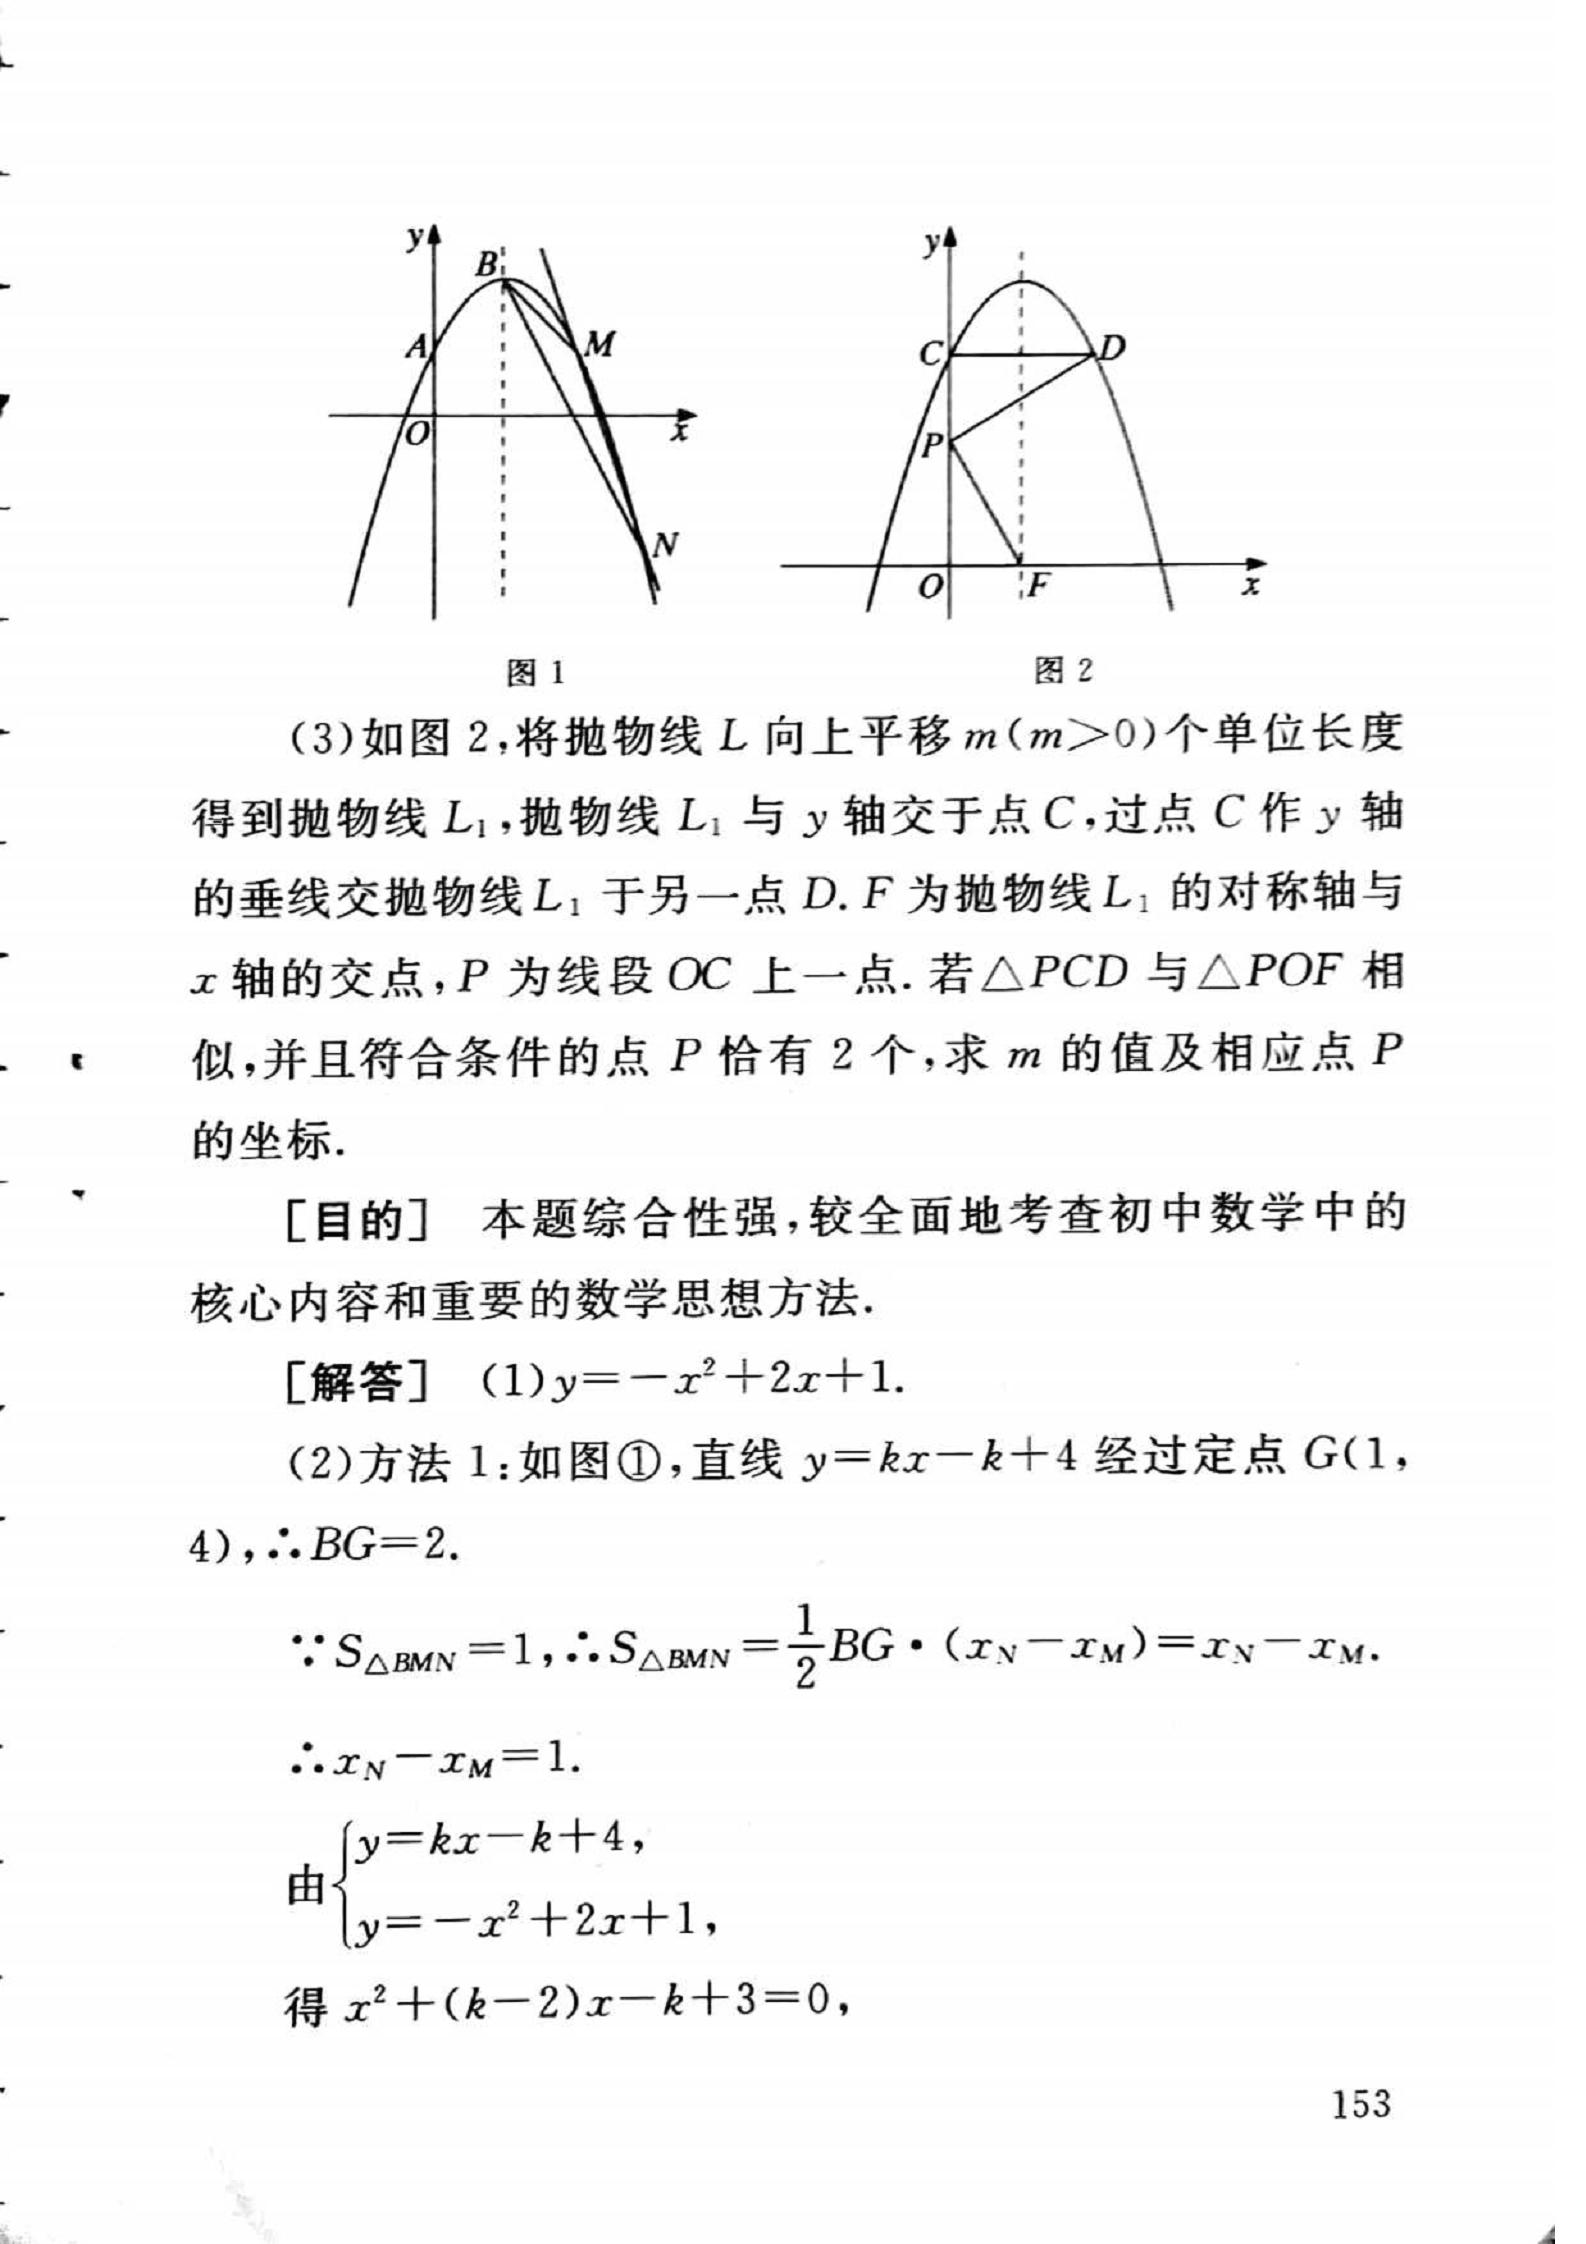 y B A M O x N
y C D P O F x
图 1 图 2
(3)如图 2,将抛物线 L 向上平移 m(m>0)个单位长度
得到抛物线 L₁,抛物线 L₁ 与 y 轴交于点 C,过点 C 作 y 轴
的垂线交抛物线 L₁ 于另一点 D. F 为抛物线 L₁ 的对称轴与
x 轴的交点,P 为线段 OC 上一点. 若△PCD 与△POF 相
似,并且符合条件的点 P 恰有 2 个,求 m 的值及相应点 P
的坐标.
[目的] 本题综合性强,较全面地考查初中数学中的
核心内容和重要的数学思想方法.
[解答] (1)y=-x²+2x+1.
(2)方法 1:如图①,直线 y=kx-k+4 经过定点 G(1,
4),∴BG=2.
∵S△BMN=1,∴S△BMN=1/2BG·(xN-xM)=xN-xM.
∴xN-xM=1.
由{y=kx-k+4,
y=-x²+2x+1,
得 x²+(k-2)x-k+3=0,
153